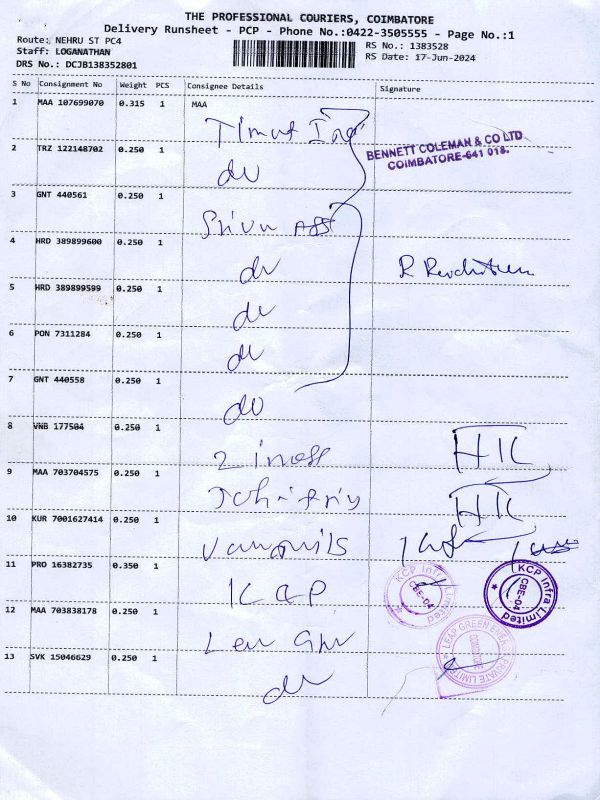 THE PROFESSIONAL COURIERS, COIMBATORE
Delivery Runsheet - PCP - Phone No.:0422-3505555 - Page No.:1
Route: NEHRU ST PC4
Staff: LOGANATHAN
DRS No.: DCJB138352801
RS No.: 1383528
RS Date: 17-Jun-2024
S No Consignment No Weight PCS Consignee Details Signature
1 MAA 107699070 0.315 1 MAA
Times
BENNETT COLEMAN & CO LTD
COIMBATORE-641 018.
2 TRZ 122148702 0.250 1
do
3 GNT 440561 0.250 1
4 HRD 389899600 0.250 1
do
5 HRD 389899599 0.250 1
do
6 PON 7311284 0.250 1
do
7 GNT 440558 0.250 1
do
8 VNB 177504 0.250 1
HK
9 MAA 703704575 0.250 1
HK
10 KUR 7001627414 0.250 1
11 PRO 16382735 0.350 1
KCP
KCP Infra Limited
CBE-04
KCP Infra Limited
CBE-04
12 MAA 703838178 0.250 1
LEAP GREEN ENERGY PRIVATE LIMITED
COIMBATORE
13 SVK 15046629 0.250 1
do